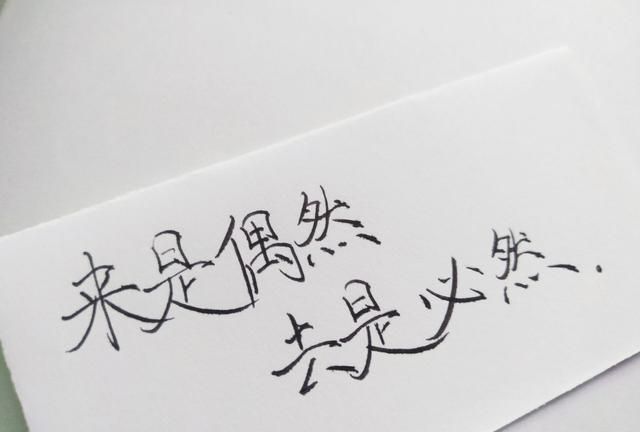 来是偶然
去是必然.